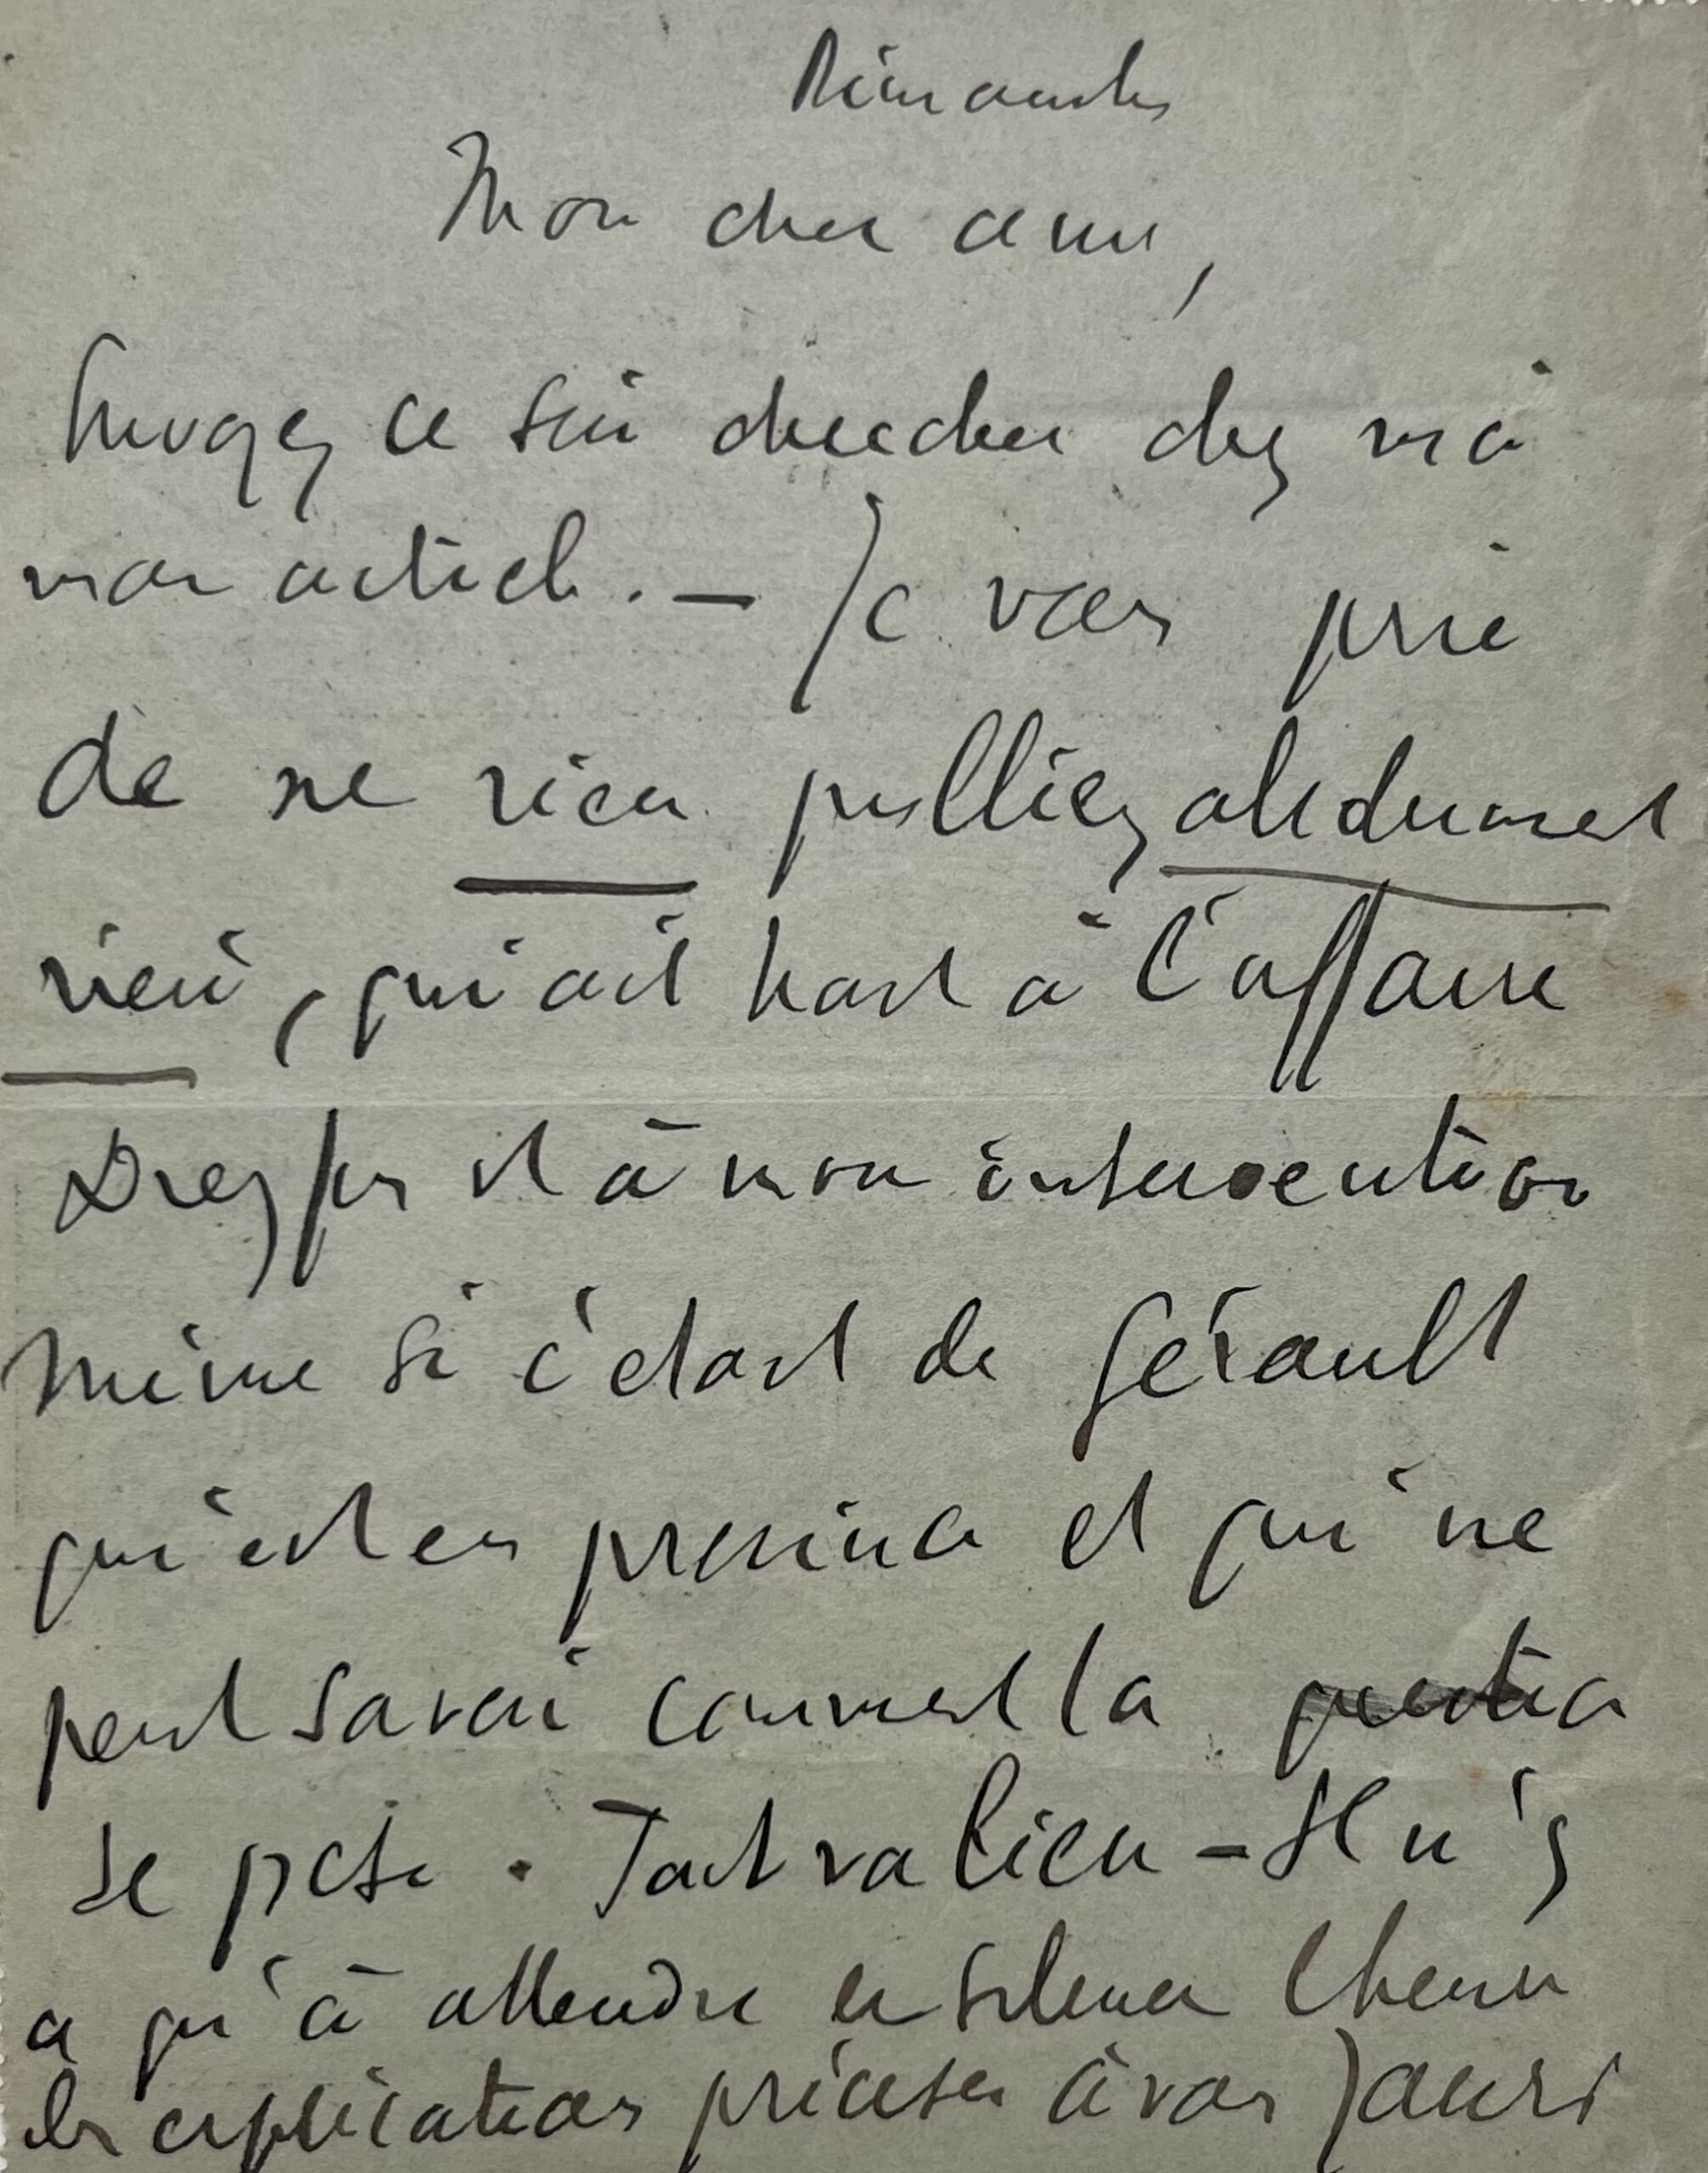 Dimanche
Mon cher ami,
Envoyez ce soir chercher chez moi
mon article. — Je vous prie
de ne rien publier, absolument
rien, qui ait trait à l'affaire
Dreyfus et à mon intervention
même si c'était de Gérault
qui est en province et qui ne
peut savoir comment la question
se pose. Tout va bien — Il n'y
a qu'à attendre en silence l'heure
des explications précises à vous Jaurès